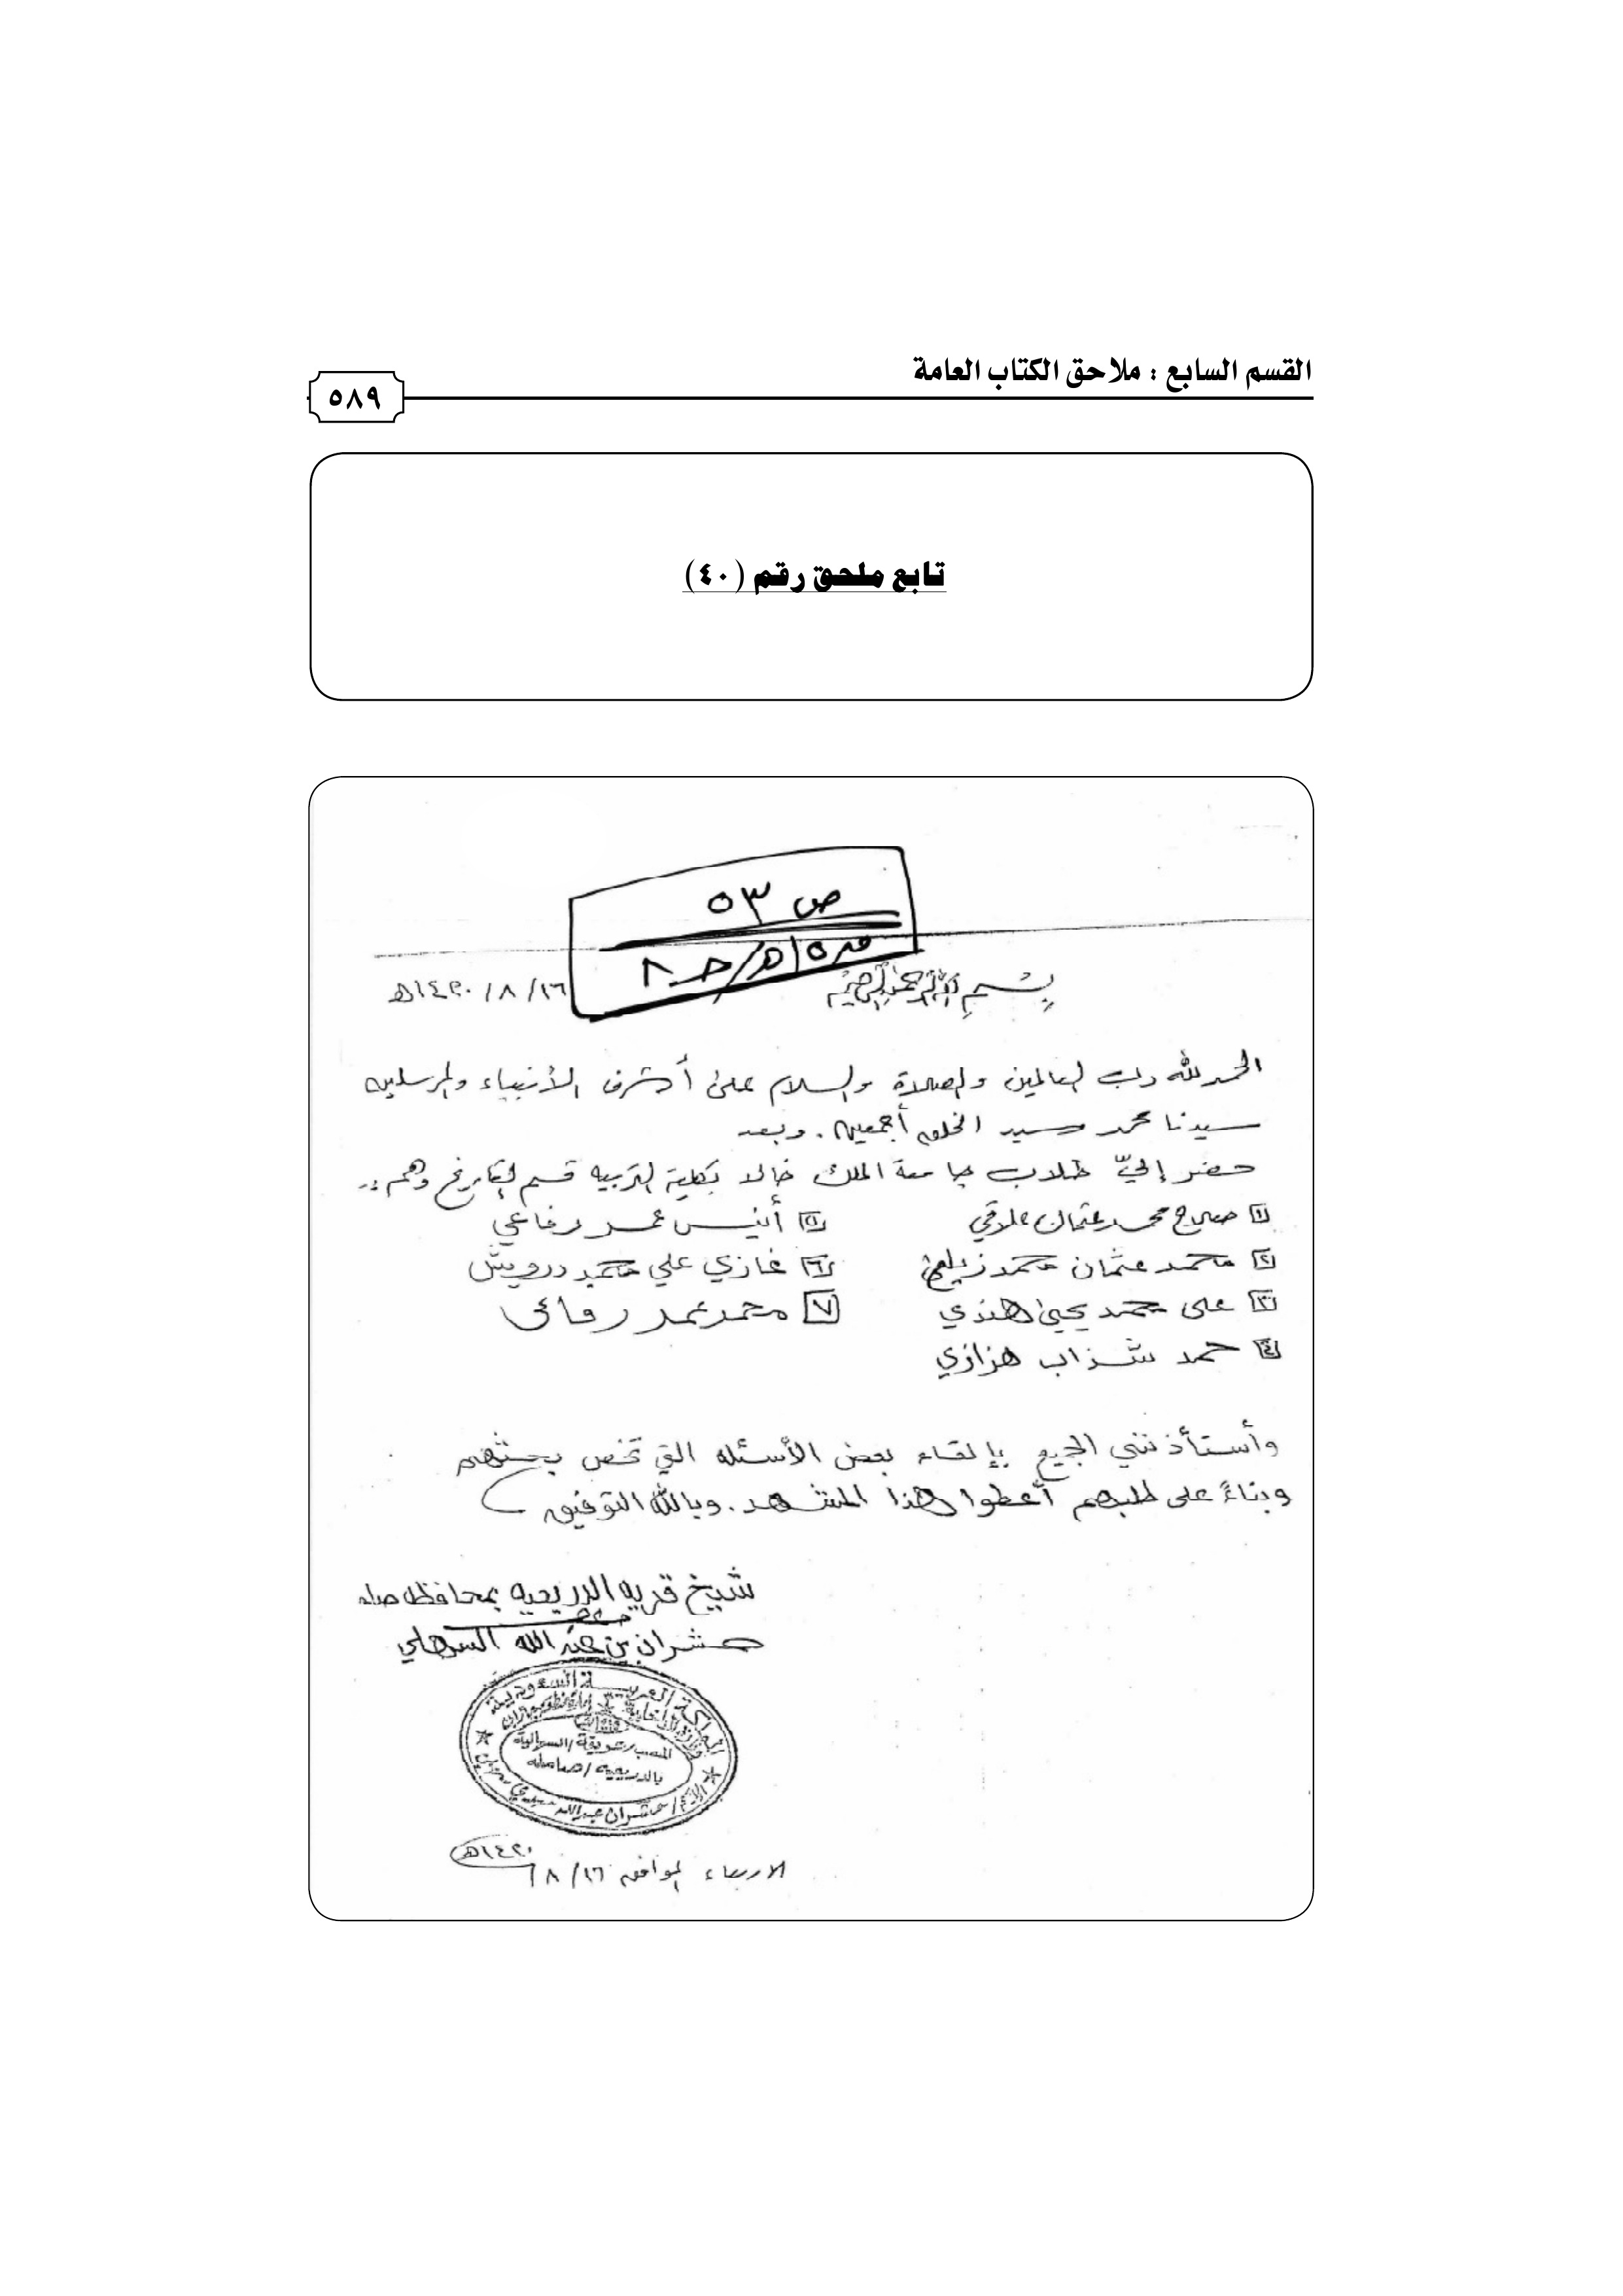 القسم السابع : ملاحق الكتاب العامة
٥٨٩
تابع ملحق رقم (٤٠)
ص ٥٣
بسم الله الرحمن الرحيم
١٦/٨/١٤٢٠هـ
الحمد لله رب العالمين والصلاة والسلام على أشرف الأنبياء والمرسلين
سيدنا محمد سيد الخلق أجمعين . وبعد
حضر إليّ طلاب جامعة الملك خالد بكلية التربيه قسم التاريخ وهم :-
١ صلاح محمد عثمان علاقي
٢ محمد عثمان محمد زيلعي
٣ على محمد يحيى هندي
٤ حمد شذاب هزازي
٥ أنيس عمر رفاعي
٦ غازي علي محمد درويش
٧ محمد عمر رفاعى
وأستأذنني الجميع بإلقاء بعض الأسئله التي تخص بحثهم
وبناءً على طلبهم أعطوا هذا المشهد . وبالله التوفيق
شيخ قريه الدريعيه بمحافظه
بن عبد الله السهلي
المملكة العربية السعودية
بالدريعيه / صامطه
الاربعاء الموافق ١٦/٨/
١٤٢٠هـ